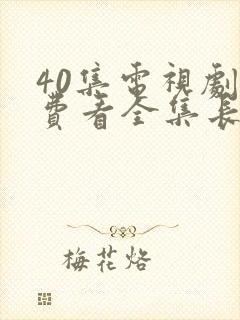 40集電視劇
費看全集長
梅花烙